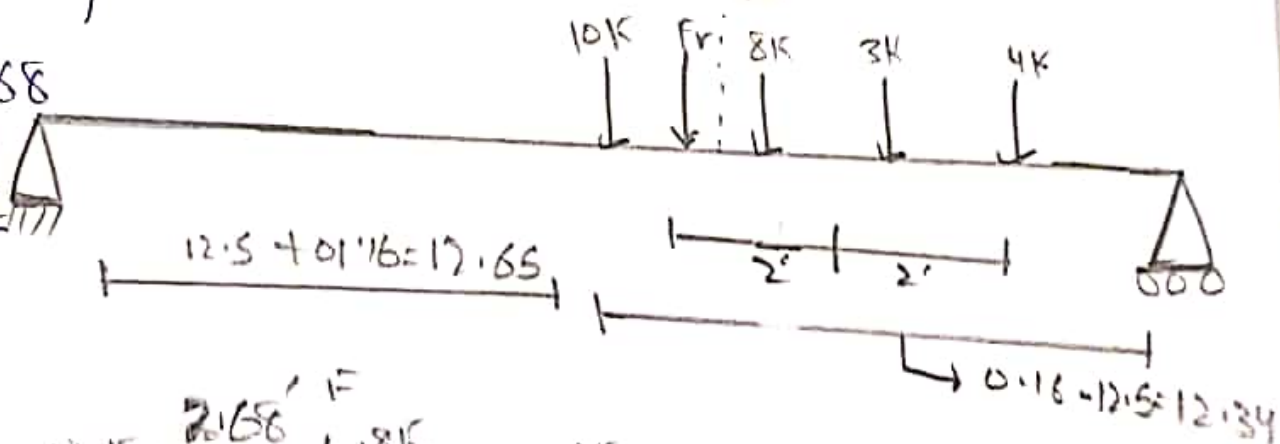 10K Fr 8K 3K 4K
68
12.5 + 0.16 = 12.65
2' 2'
0.16 - 12.5 = 12.34
2.68' F
8K